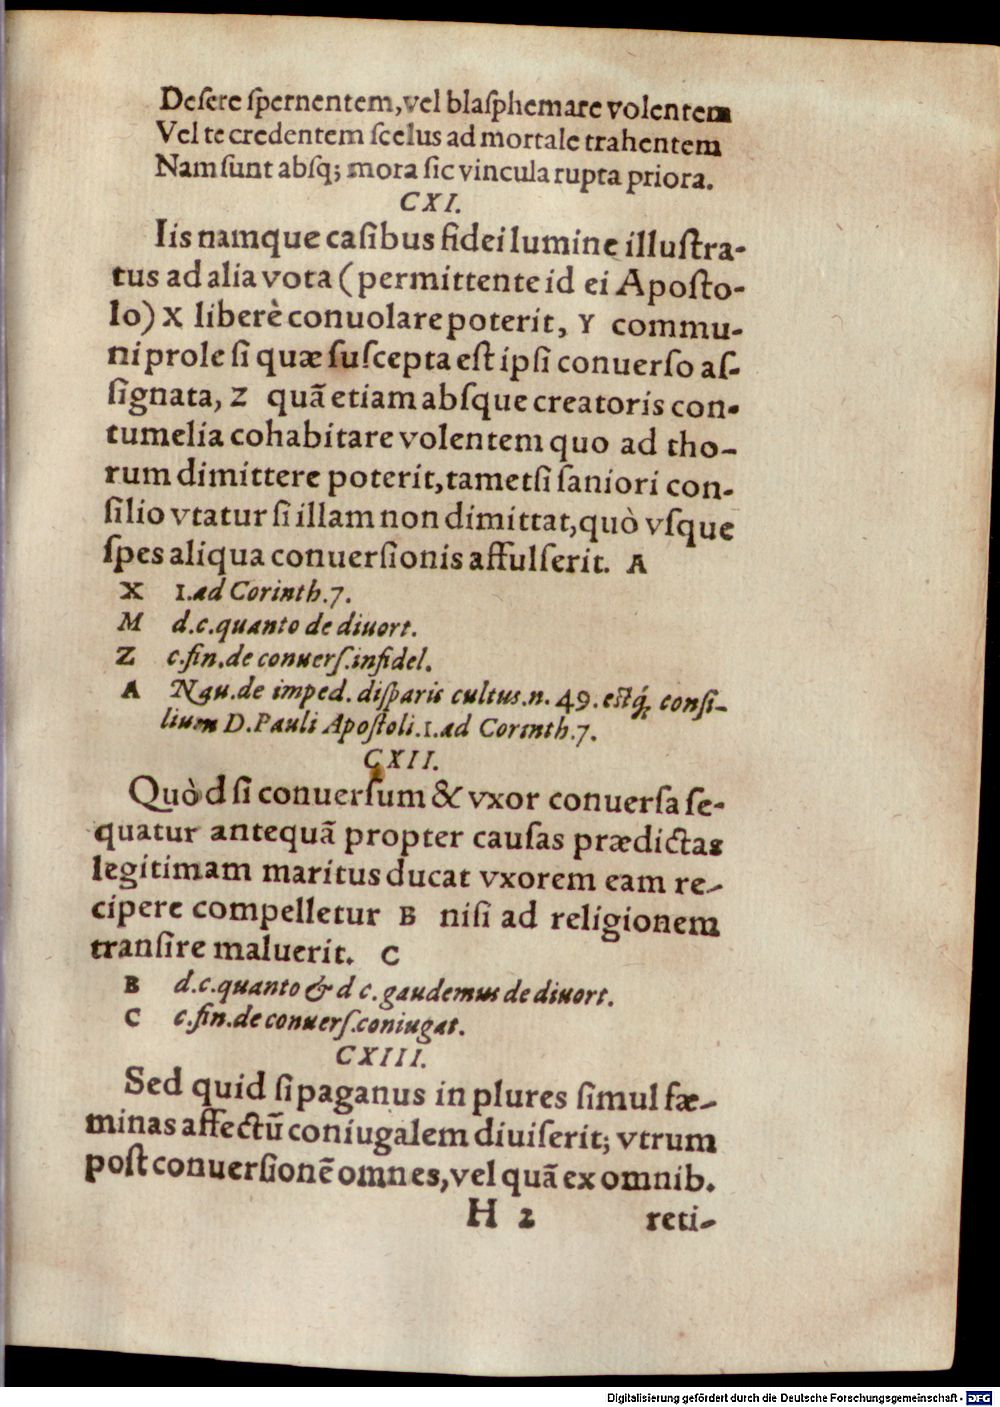 Deſere ſpernentem, vel blaſphemare volentem
Vel te credentem ſcelus ad mortale trahentem
Nam ſunt abſq; mora ſic vincula rupta priora.
CXI.
Iis namque caſibus fidei lumine illuſtra-
tus ad alia vota (permittente id ei Apoſto-
lo) X liberè conuolare poterit, Y commu-
ni prole ſi quæ ſuſcepta eſt ipſi conuerſo aſ-
ſignata, Z quã etiam abſque creatoris con-
tumelia cohabitare volentem quo ad tho-
rum dimittere poterit, tametſi ſaniori con-
ſilio vtatur ſi illam non dimittat, quò vſque
ſpes aliqua conuerſionis affulſerit. A
X 1. ad Corinth. 7.
M d. c. quanto de diuort.
Z c. fin. de conuerſ. infidel.
A Nau. de imped. diſparis cultus. n. 49. eſtq́; conſi-
lium D. Pauli Apoſtoli. 1. ad Corinth. 7.
CXII.
Quòd ſi conuerſum & vxor conuerſa ſe-
quatur antequã propter cauſas prædictas
legitimam maritus ducat vxorem eam re-
cipere compelletur B niſi ad religionem
tranſire maluerit. C
B d. c. quanto & d c. gaudemus de diuort.
C c. fin. de conuerſ. coniugat.
CXIII.
Sed quid ſi paganus in plures ſimul fæ-
minas affectũ coniugalem diuiſerit; vtrum
poſt conuerſionẽ omnes, vel quã ex omnib.
H 2 reti-
Digitalisierung gefördert durch die Deutsche Forschungsgemeinschaft - DFG